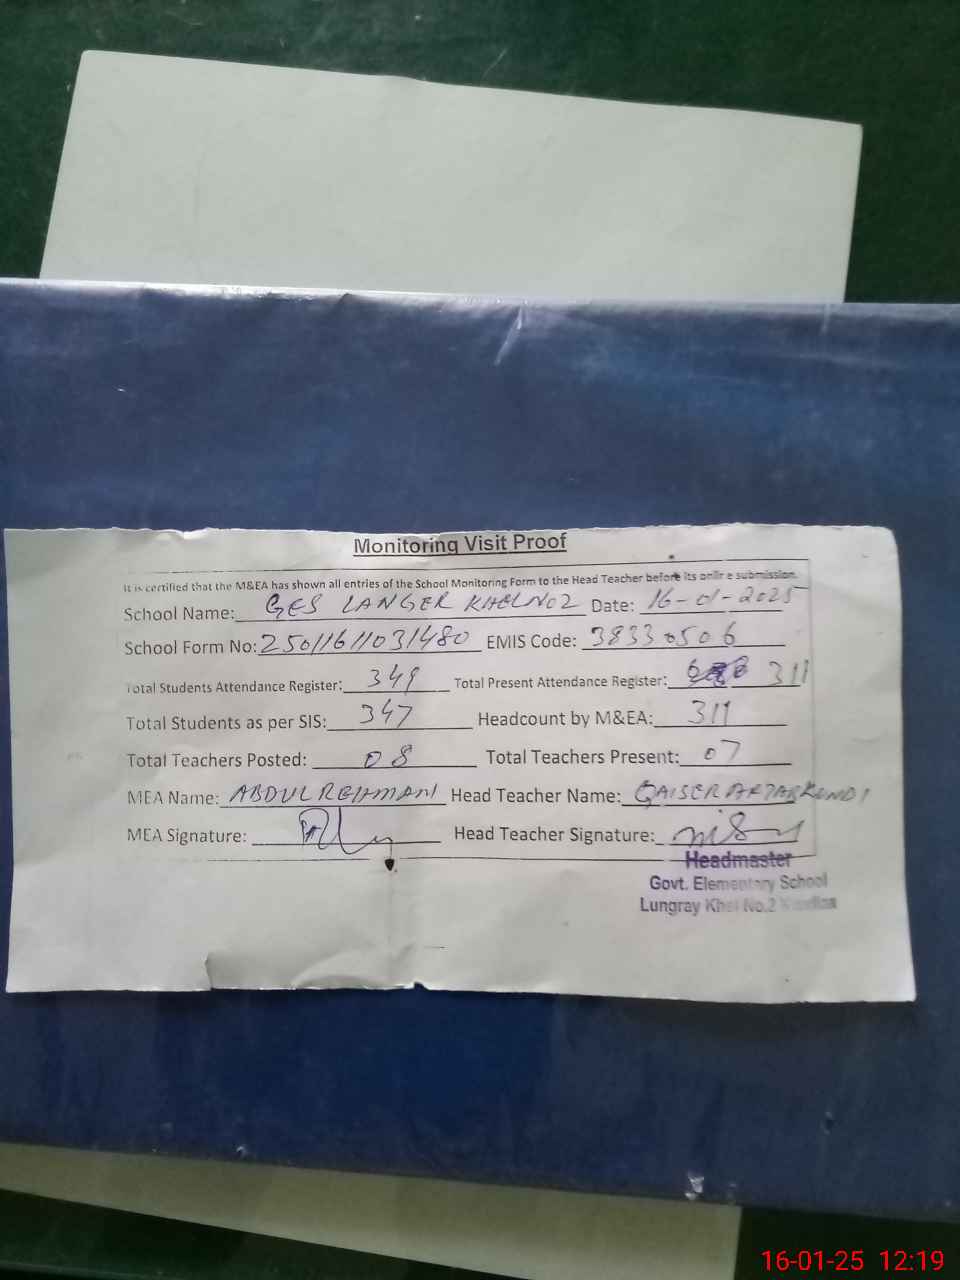 Monitoring Visit Proof
It is certified that the M&EA has shown all entries of the School Monitoring Form to the Head Teacher before its online submission.
School Name: GES LANGER KHEL NO2 Date: 16-01-2025
School Form No: 25011611031480 EMIS Code: 38330506
Total Students Attendance Register: 349 Total Present Attendance Register: 311
Total Students as per SIS: 347 Headcount by M&EA: 311
Total Teachers Posted: 08 Total Teachers Present: 07
MEA Name: ABDUL REHMAN Head Teacher Name: QAISER AFTAB KUNDI
MEA Signature: Head Teacher Signature:
Headmaster
Govt. Elementary School
Lungray Khel No.2
16-01-25 12:19